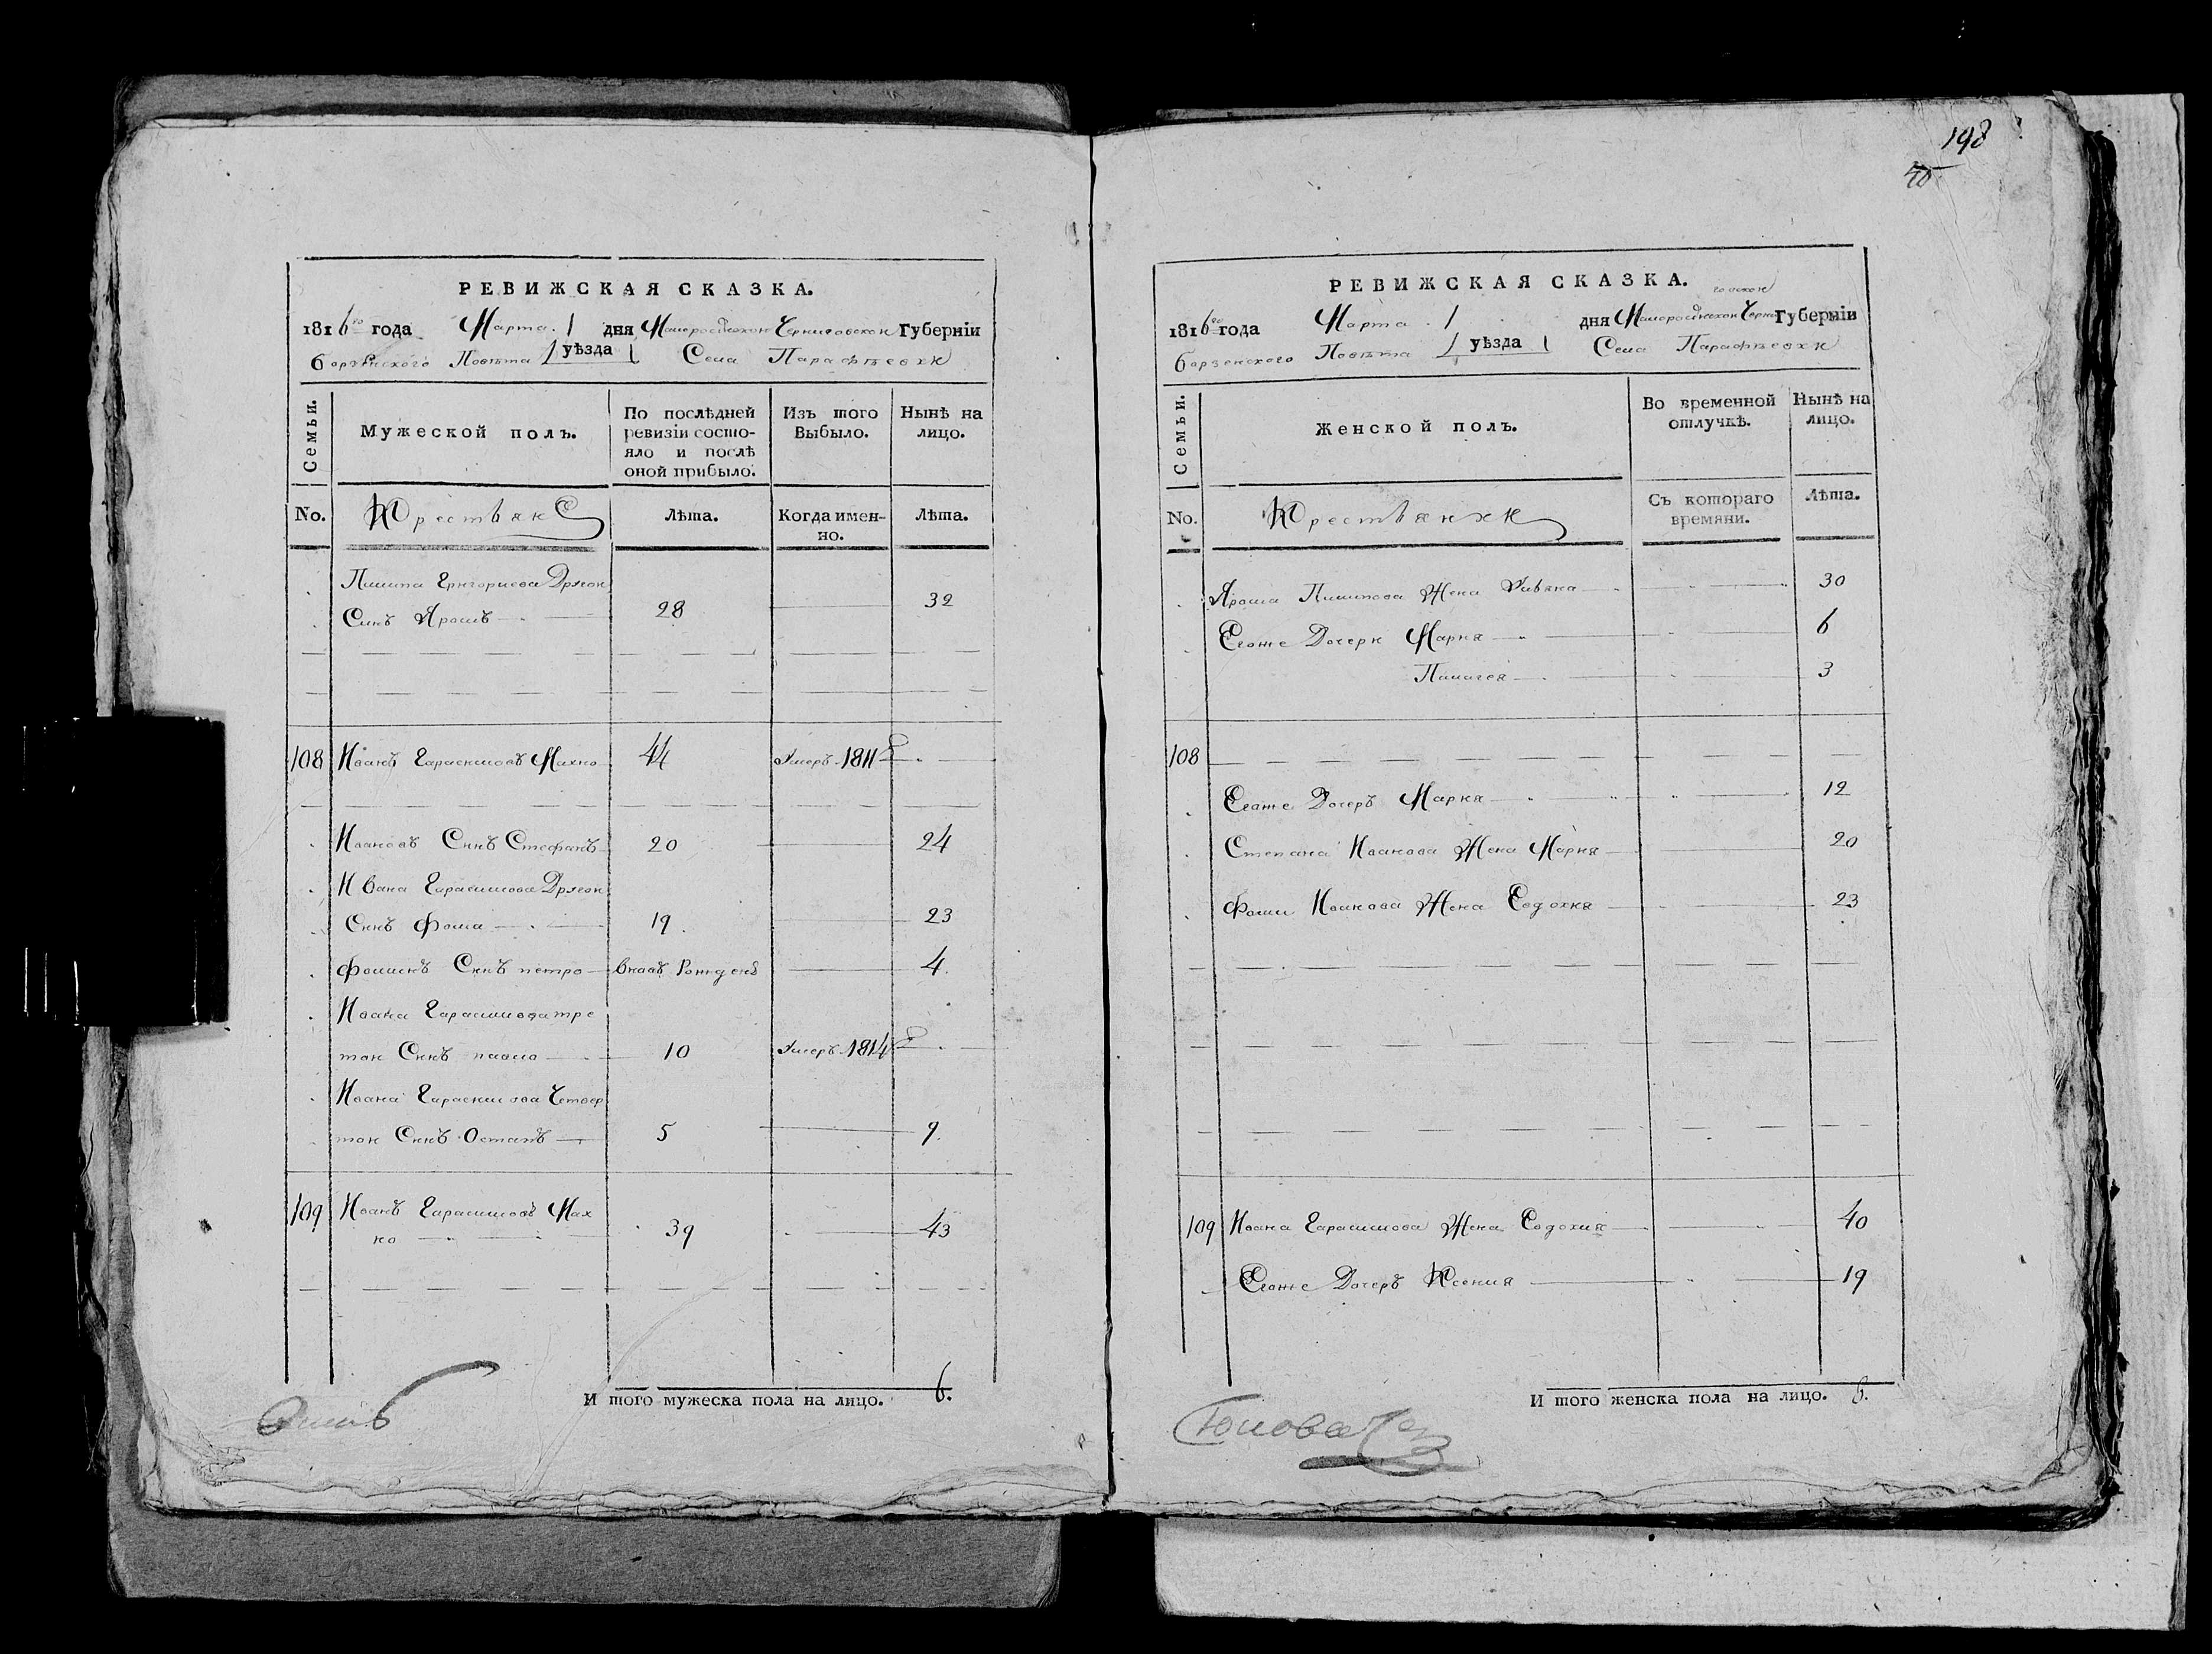 РЕВИЖСКАЯ СКАЗКА.
1816го года Марта 1 дня Малоросійской Черниговской Губерніи
Борзенского Повѣта уѣзда Села Парафѣевки
Семьи.
Мужеской полъ.
По послѣдней ревизіи состо-
яло и послѣ
оной прибыло.
Изъ того
Выбыло.
Нынѣ на
лицо.
No.
Крестьяне
Лѣта.
Когда имен-
но.
Лѣта.
Пилипа Григориева Другой
Синъ Ярошъ 28 32
108 Иванъ Гарасимовъ Махно 44 Умеръ 1811
Ивановъ Синъ Стефанъ 20 24
Ивана Гарасимова Другой
Синъ Фома 19 23
Фоминъ Синъ петро вновъ Рожденъ 4
Ивана Гарасимова тре
той Синъ павло 10 Умеръ 1814
Ивана Гарасимова Четвер
той Синъ Остапъ 5 9
109 Иванъ Гарасимовъ Мах
но 39 43
И того мужеска пола на лицо. 6.
198
40
РЕВИЖСКАЯ СКАЗКА.
говской
1816го года Марта 1 дня Малоросійской Черни Губерніи
Борзенского Повѣта уѣзда Села Парафѣевки
Семьи.
Женской полъ.
Во временной
отлучкѣ.
Нынѣ на
лицо.
No.
Крестьянки
Съ котораго
времяни.
Лѣта.
Яроша Пилипова Жена Уляна 30
Егоже Дочери Мария 6
Палагея 3
108
Егоже Дочеръ Мария 12
Степана Иванова Жена Мария 20
Фоми Иванова Жена Евдокия 23
109 Ивана Гарасимова Жена Евдокия 40
Егоже Дочеръ Ксения 19
И того женска пола на лицо. 8.